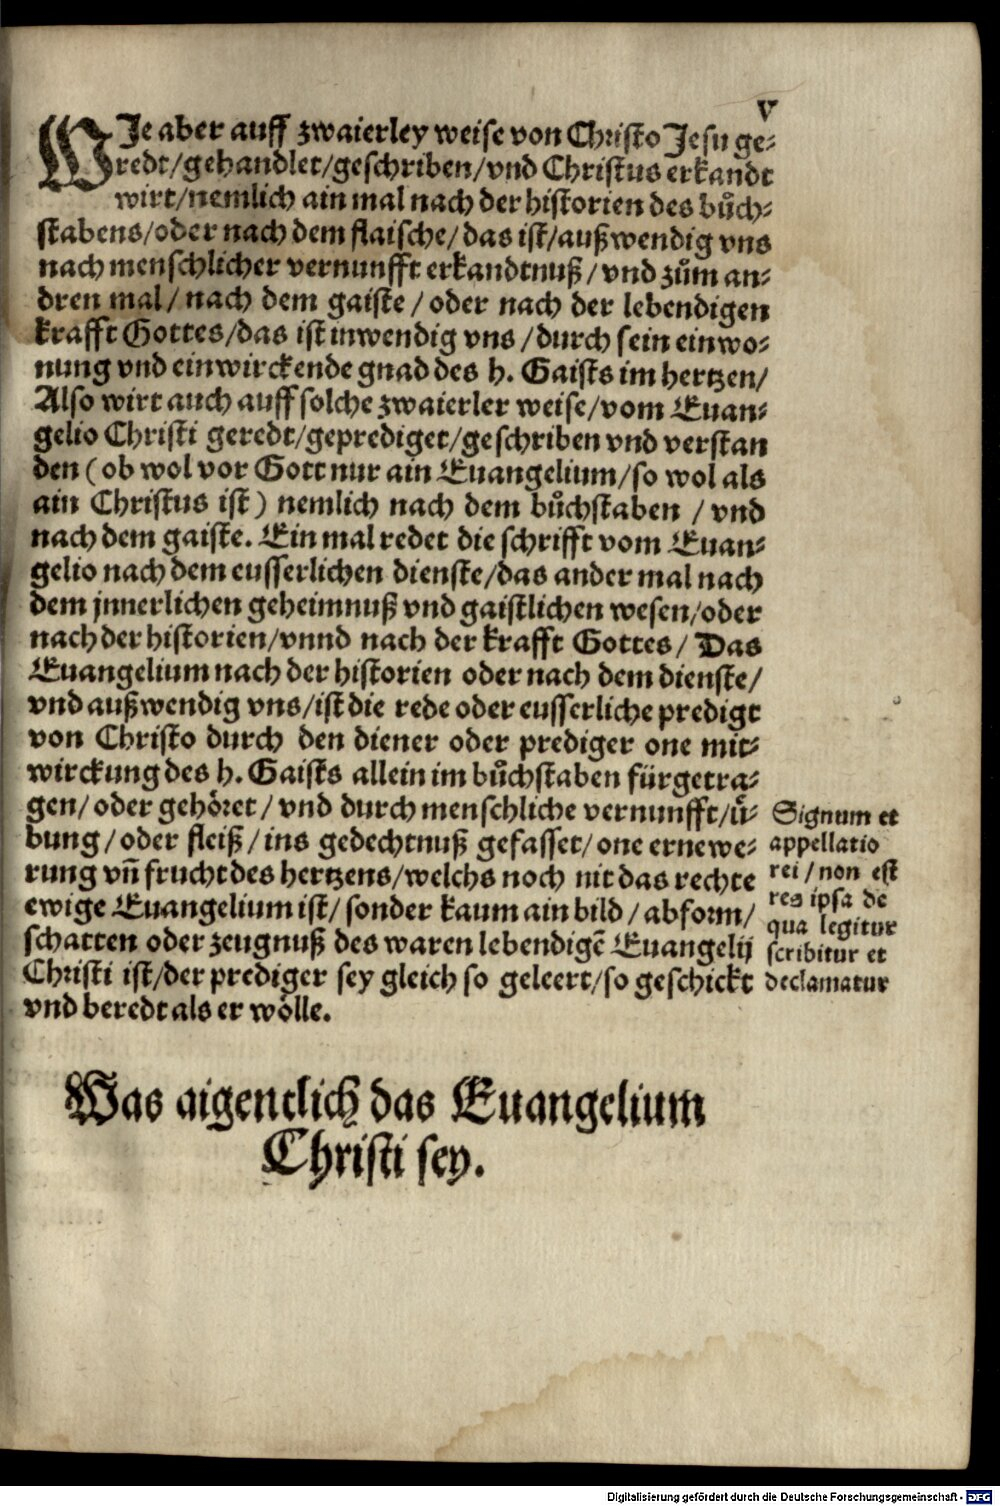 V
WJe aber auff zwaierley weise von Christo Jesu ge-
redt/gehandlet/geschriben/vnd Christus erkandt
wirt/nemlich ain mal nach der historien des bůch-
stabens/oder nach dem flaische/das ist/außwendig vns
nach menschlicher vernunfft erkandtnuß/vnd zům an-
dren mal/nach dem gaiste/oder nach der lebendigen
krafft Gottes/das ist inwendig vns/durch sein einwo-
nung vnd einwirckende gnad des h. Gaists im hertzen/
Also wirt auch auff solche zwaierler weise/vom Euan-
gelio Christi geredt/geprediget/geschriben vnd verstan
den (ob wol vor Gott nur ain Euangelium/so wol als
ain Christus ist) nemlich nach dem bůchstaben/vnd
nach dem gaiste. Ein mal redet die schrifft vom Euan-
gelio nach dem eusserlichen dienste/das ander mal nach
dem jnnerlichen geheimnuß vnd gaistlichen wesen/oder
nach der historien/vnnd nach der krafft Gottes/ Das
Euangelium nach der historien oder nach dem dienste/
vnd außwendig vns/ist die rede oder eusserliche predigt
von Christo durch den diener oder prediger one mit-
wirckung des h. Gaists allein im bůchstaben fürgetra-
gen/oder gehöret/vnd durch menschliche vernunfft/ü-
bung/oder fleiß/ins gedechtnuß gefasset/one ernewe-
rung vñ frucht des hertzens/welchs noch nit das rechte
ewige Euangelium ist/sonder kaum ain bild/abform/
schatten oder zeugnuß des waren lebendigẽ Euangelij
Christi ist/der prediger sey gleich so geleert/so geschickt
vnd beredt als er wölle.
Signum et
appellatio
rei/non est
res ipsa de
qua legitur
scribitur et
declamatur
Was aigentlich das Euangelium
Christi sey.
Digitalisierung gefördert durch die Deutsche Forschungsgemeinschaft - DFG